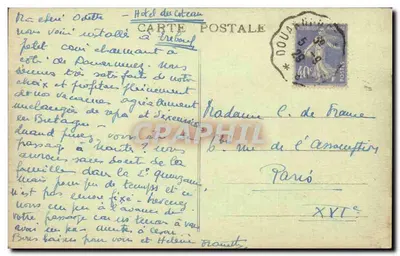 Ma chère Odette - Hôtel du Coteau
CARTE POSTALE
nous voici installés à Tréboul
petit coin charmant à
côté de Douarnenez. Nous
sommes très satisfaits de notre
choix et profitons pleinement
de nos vacances agréablement
mélangées de repos et d'excursions
en Bretagne.
Quand
passage à Nantes ? nous
aurons sans doute de la
famille dans la 2e quinzaine
mais pour peu de temps et ce
n'est pas encore fixé.
nous un peu à l'avance de
votre passage car nous tenons à vous
avoir un peu
Bons baisers pour vous et Hélène
DOUARNENEZ
40c
Madame C. de France
rue de l'Assomption
Paris
XVIe
CPArama.com